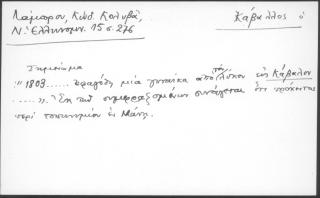 Λάμπρου, Κώδ. Κολυβᾶ,
Ν. Ἑλληνομν. 15 σ. 276
Κάβαλλος ὁ
Σημείωμα
"1803...... ἐφαγόθη μία γυναίκα ἀπὸ τὸν λύκον εἰς Κάβαλον
.....". Ἐκ τῶν συμφραζομένων συνάγεται ὅτι πρόκειται
περὶ τοπωνυμίου ἐν Μάνῃ.